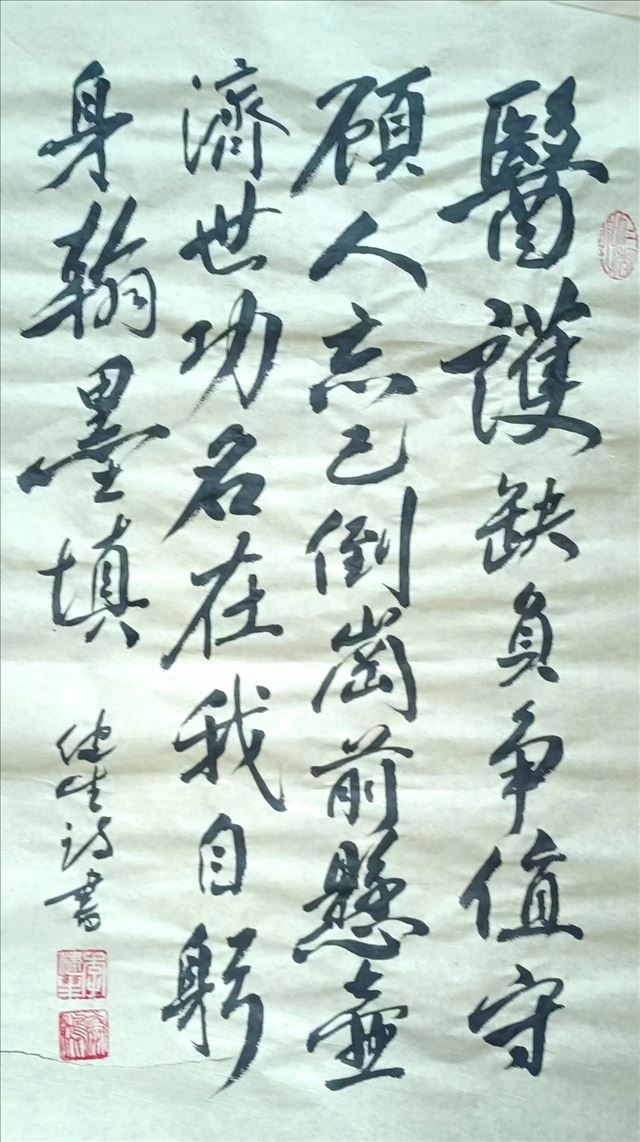 醫護缺員争值守
顧人忘己倒崗前懸壺
濟世功名在我自躬
身翰墨填
健生詩書